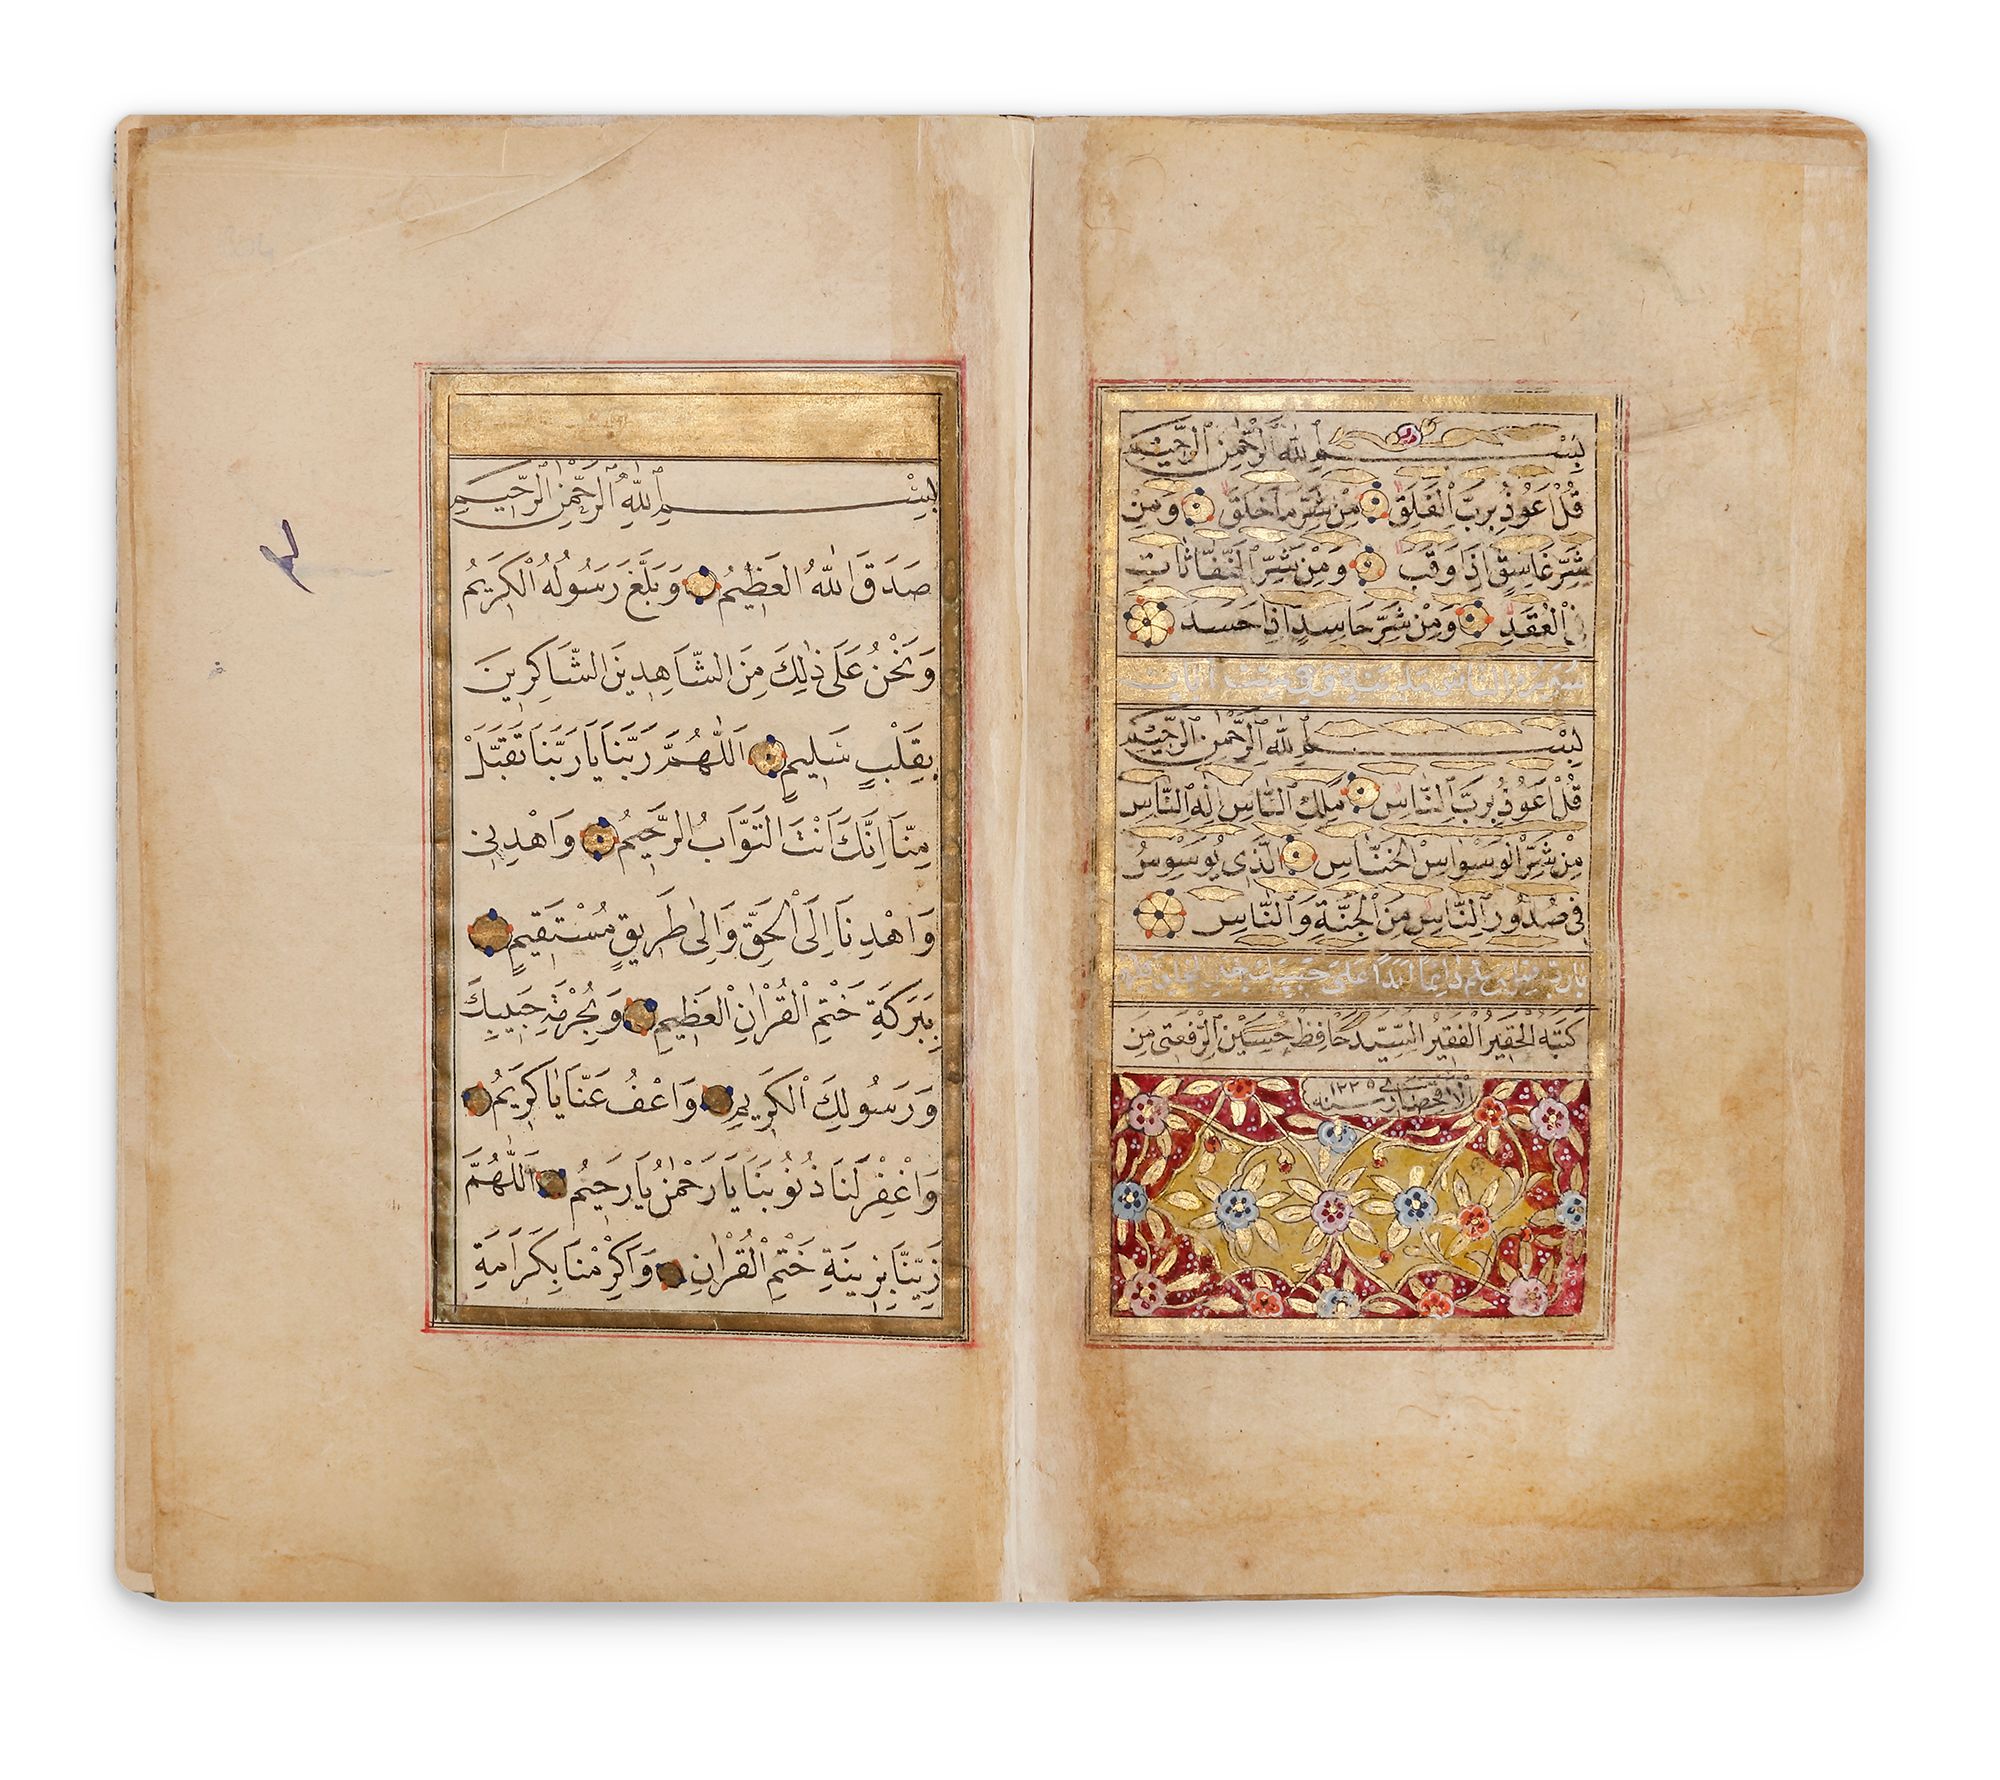 بِسْمِ اللّٰهِ الرَّحْمٰنِ الرَّحٖيمِ
قُلْ اَعُوذُ بِرَبِّ الْفَلَقِ مِنْ شَرِّ مَا خَلَقَ وَمِنْ
شَرِّ غَاسِقٍ اِذَا وَقَبَ وَمِنْ شَرِّ النَّفَّاثَاتِ
فِى الْعُقَدِ وَمِنْ شَرِّ حَاسِدٍ اِذَا حَسَدَ
سُورَةُ النَّاسِ مدنية وهي ست آيات
بِسْمِ اللّٰهِ الرَّحْمٰنِ الرَّحٖيمِ
قُلْ اَعُوذُ بِرَبِّ النَّاسِ مَلِكِ النَّاسِ اِلٰهِ النَّاسِ
مِنْ شَرِّ الْوَسْوَاسِ الْخَنَّاسِ الَّذٖى يُوَسْوِسُ
فٖى صُدُورِ النَّاسِ مِنَ الْجِنَّةِ وَالنَّاسِ
يارب صل وسلم دَائِمًا اَبَدًا عَلَى حَبِيبِكَ خير الخلق كلهم
كَتَبَهُ الْحَقِيرُ الْفَقِيرُ السَّيِّد حَافِظ حُسَيْن الرِّفْعَتِى مِنْ
سنه ١٢٢٥
بِسْمِ اللّٰهِ الرَّحْمٰنِ الرَّحٖيمِ
صَدَقَ اللّٰهُ الْعَظِيمُ وَبَلَّغَ رَسُولُهُ الْكَرِيمُ
وَنَحْنُ عَلَى ذٰلِكَ مِنَ الشَّاهِدِينَ الشَّاكِرِينَ
بِقَلْبٍ سَلِيمٍ اَللّٰهُمَّ رَبَّنَا يَا رَبَّنَا تَقَبَّلْ
مِنَّا اِنَّكَ اَنْتَ التَّوَّابُ الرَّحِيمُ وَاهْدِنِى
وَاهْدِنَا اِلَى الْحَقِّ وَاِلٰى طَرِيقٍ مُسْتَقِيمٍ
بِبَرَكَةِ خَتْمِ الْقُرْاٰنِ الْعَظِيمِ وَبِحُرْمَةِ حَبِيبِكَ
وَرَسُولِكَ الْكَرِيمِ وَاعْفُ عَنَّا يَا كَرِيمُ
وَاغْفِرْ لَنَا ذُنُوبَنَا يَا رَحْمٰنُ يَا رَحِيمُ اَللّٰهُمَّ
زَيِّنَّا بِزِينَةِ خَتْمِ الْقُرْاٰنِ وَاَكْرِمْنَا بِكَرَامَةِ